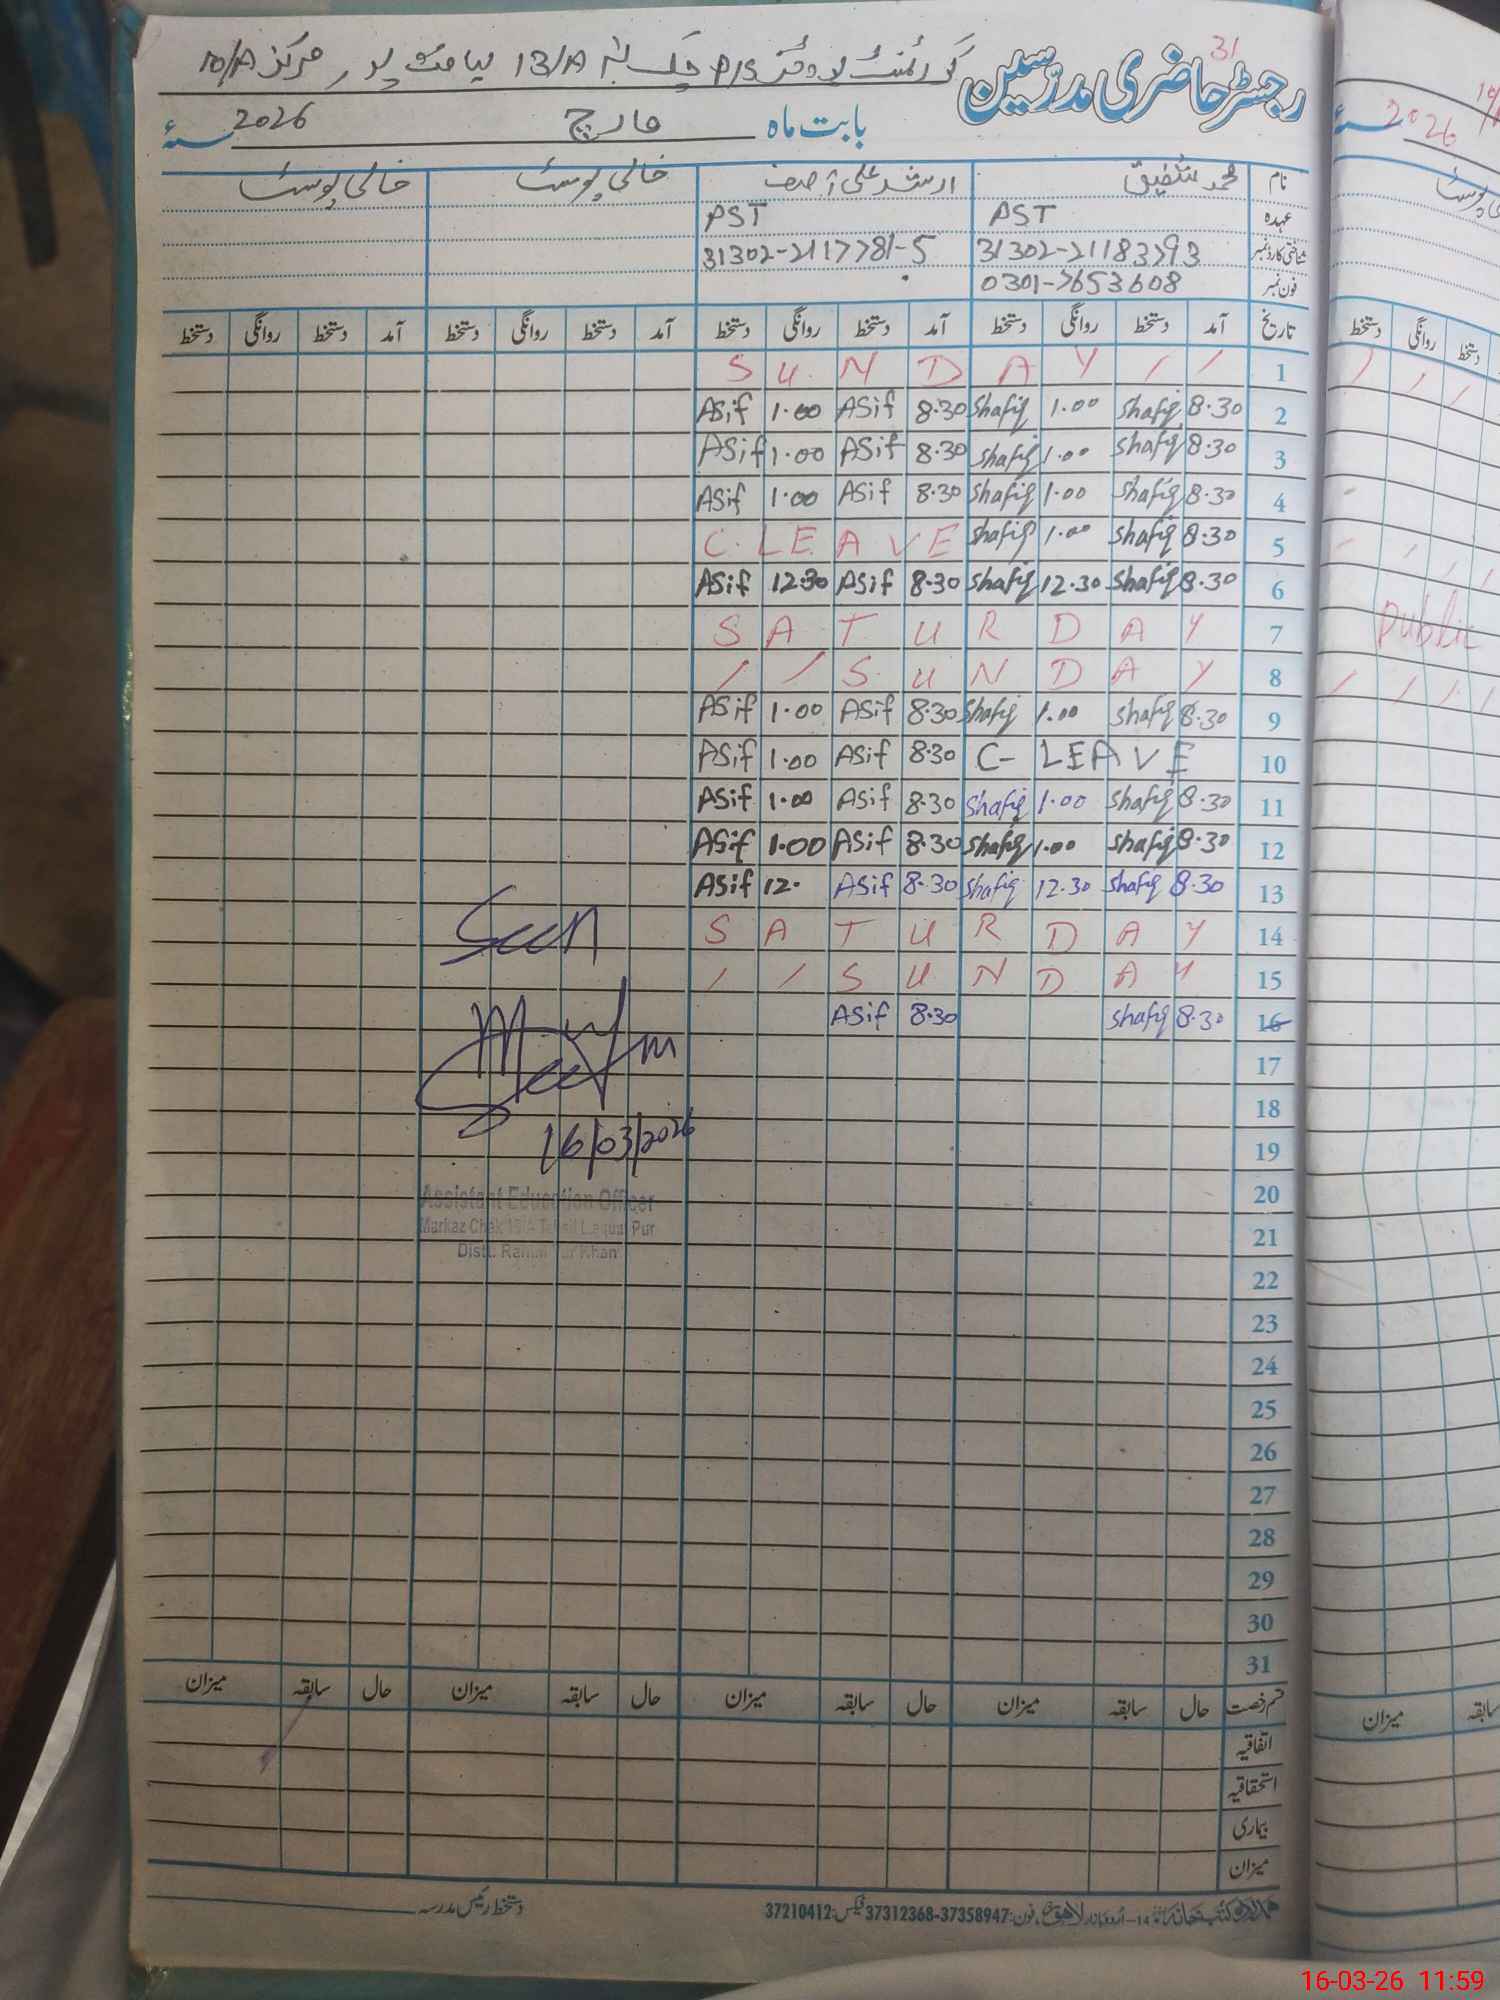 31
رجسٹر حاضری مدرسین گورنمنٹ P/S چک نمبر 13/A لیاقت پور مرکز 10/A
بابت ماہ مارچ 2026 سنہء
نام محمد شفیق ارشد علی آصف خالی پوسٹ خالی پوسٹ
عہدہ PST PST
شناختی کارڈ نمبر 31302-21183793 31302-2117781-5
فون نمبر 0301-7653608
تاریخ آمد دستخط روانگی دستخط آمد دستخط روانگی دستخط آمد دستخط روانگی دستخط آمد دستخط روانگی دستخط
S U N D A Y / / 1
Asif 1.00 Asif 8.30 Shafiq 1.00 Shafiq 8.30 2
Asif 1.00 Asif 8.30 Shafiq 1.00 Shafiq 8.30 3
Asif 1.00 Asif 8.30 Shafiq 1.00 Shafiq 8.30 4
C. LEAVE Shafiq 1.00 Shafiq 8.30 5
Asif 12.30 Asif 8.30 Shafiq 12.30 Shafiq 8.30 6
S A T U R D A Y 7
/ / S U N D A Y 8
Asif 1.00 Asif 8.30 Shafiq 1.00 Shafiq 8.30 9
Asif 1.00 Asif 8.30 C- LEAVE 10
Asif 1.00 Asif 8.30 Shafiq 1.00 Shafiq 8.30 11
Asif 1.00 Asif 8.30 Shafiq 1.00 Shafiq 8.30 12
Asif 12. Asif 8.30 Shafiq 12.30 Shafiq 8.30 13
S A T U R D A Y 14
/ / S U N D A Y 15
Asif 8.30 Shafiq 8.30 16
17
18
19
20
21
22
23
24
25
26
27
28
29
30
31
Seen
16/03/2026
Assistant Education Officer
Markaz Chak Tehsil Liaquat Pur
Distt. Rahim Yar Khan
قسم رخصت حال سابقہ میزان حال سابقہ میزان حال سابقہ میزان حال سابقہ میزان
اتفاقیہ
استحقاقیہ
بیماری
میزان
14-اردو بازار لاہور، فون: 37312368-37358947 فیکس: 37210412
دستخط رئیس مدرسہ
2026 سنہء
دستخط روانگی دستخط
Public
میزان سابقہ
16-03-26 11:59